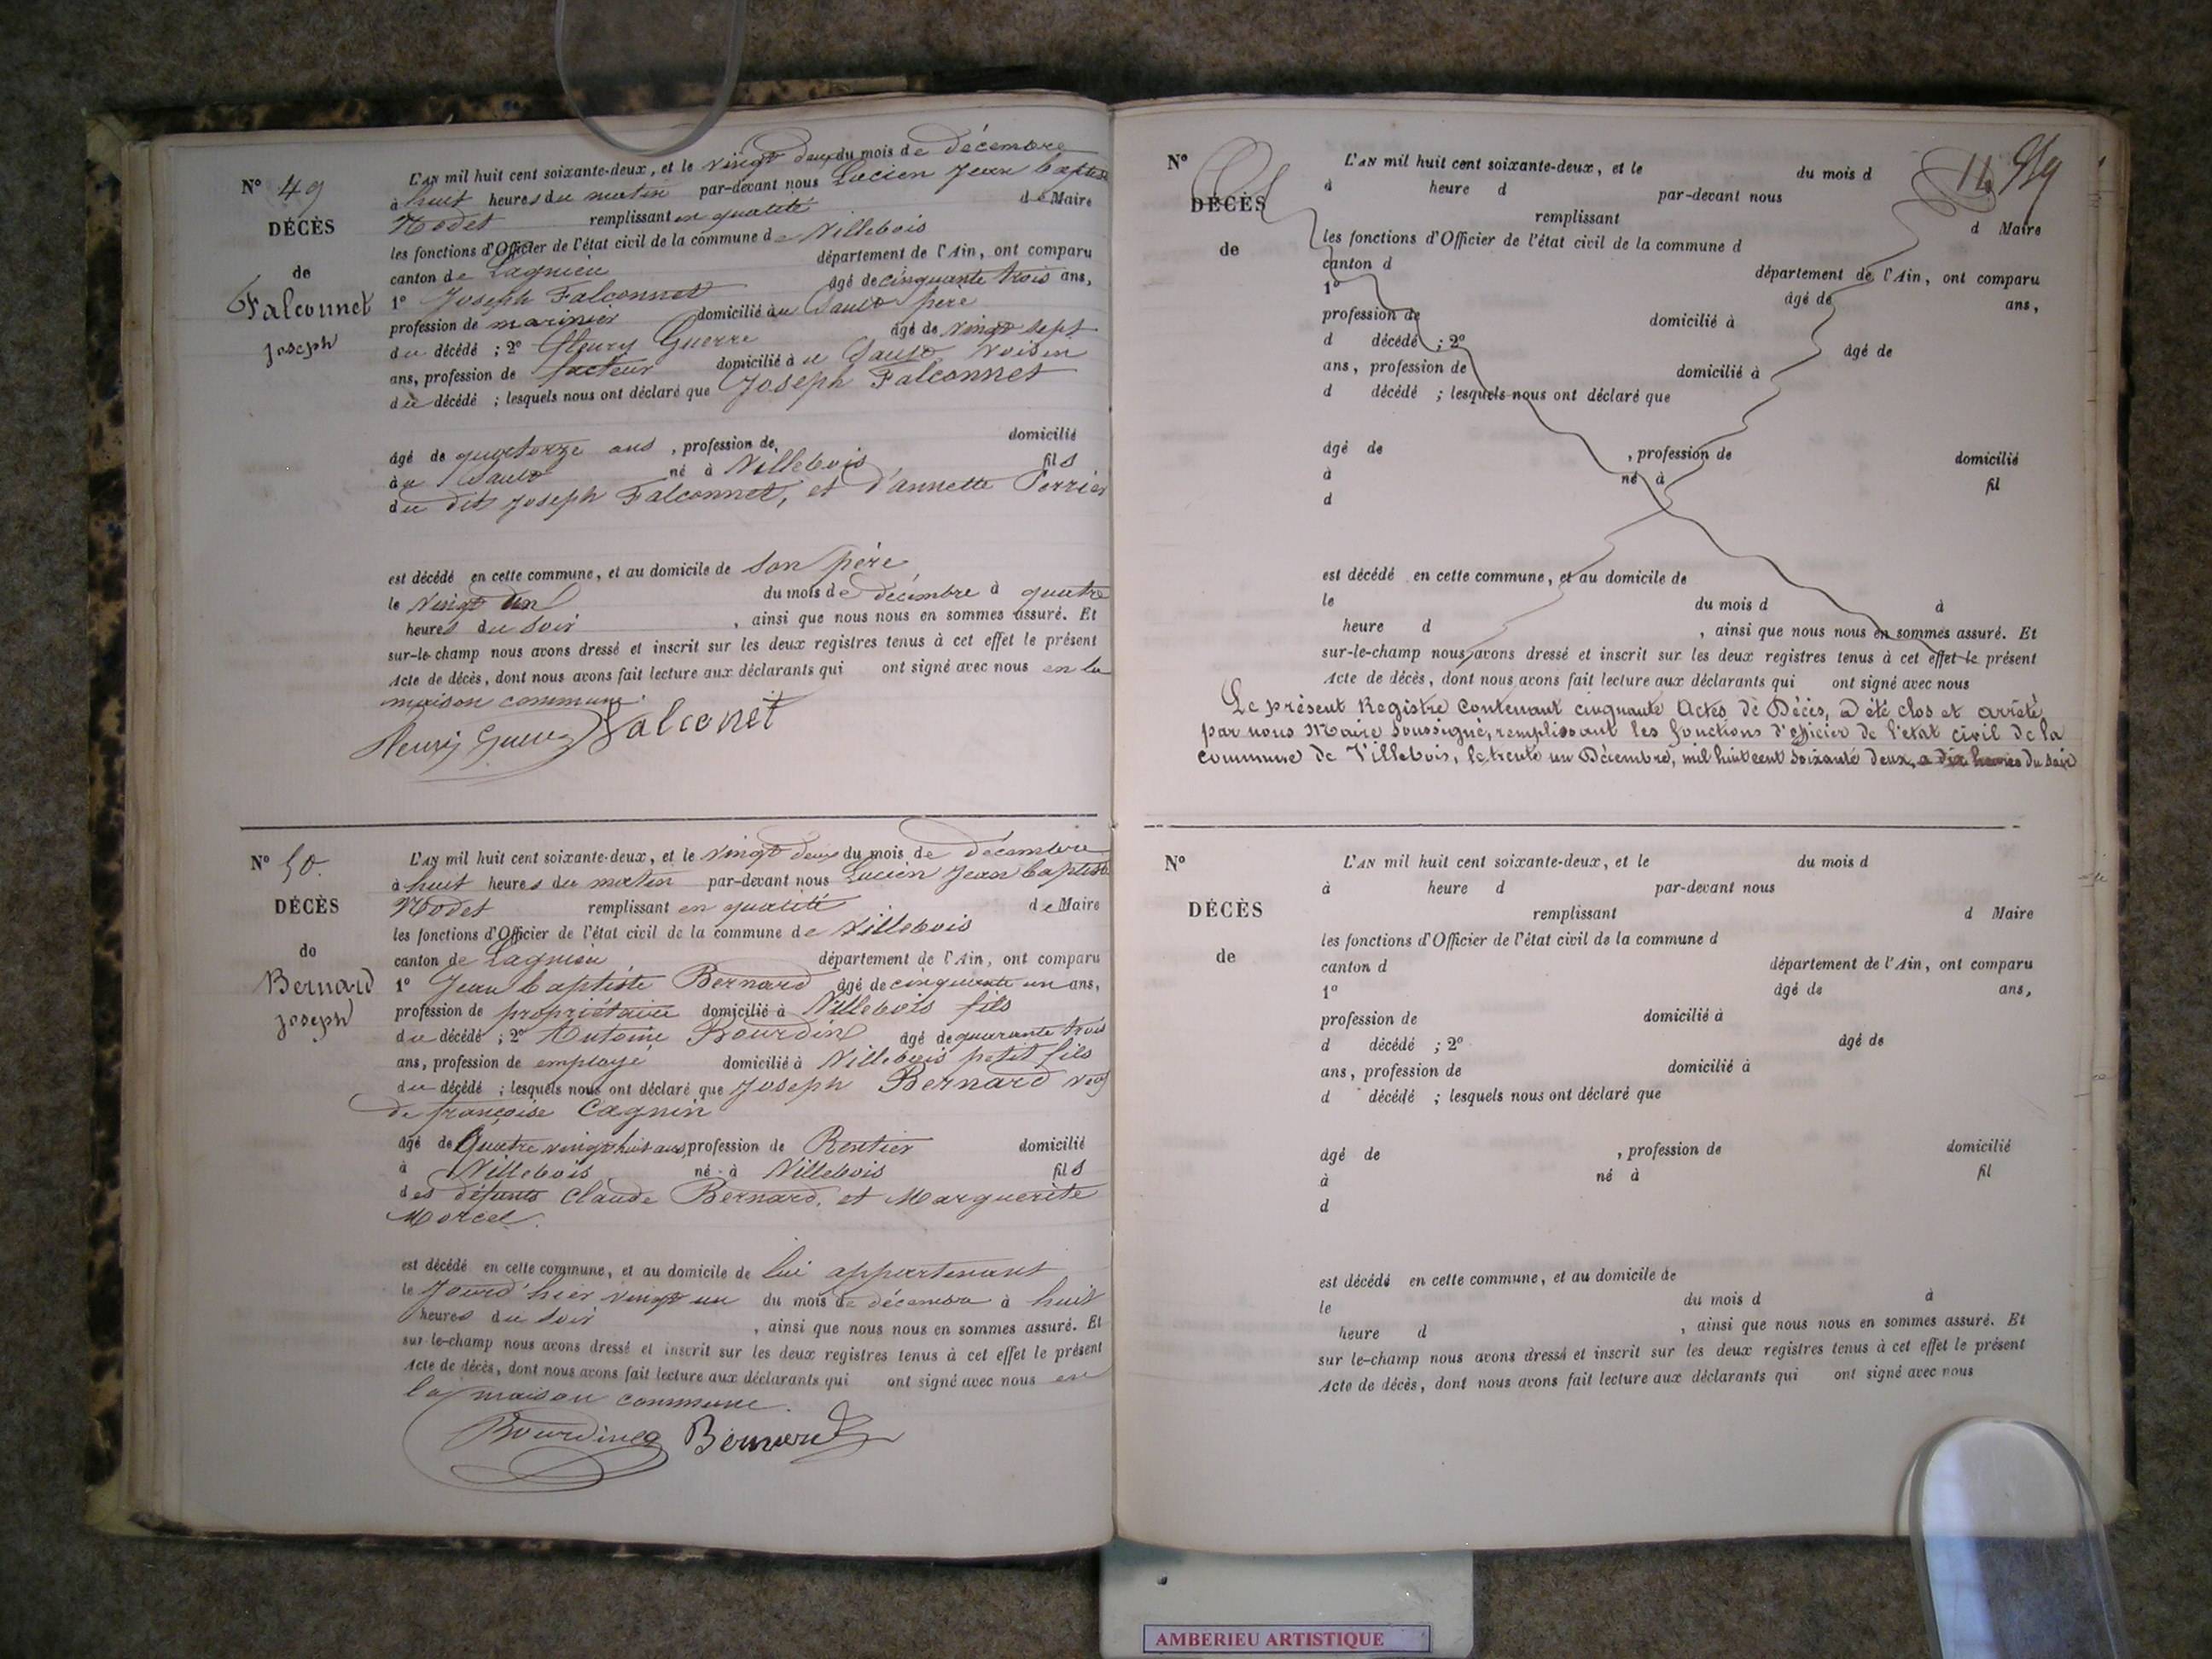 N° 49
DÉCÈS
de
Falconnet
joseph
L'AN mil huit cent soixante-deux, et le vingt deux du mois de décembre
à huit heures du matin par-devant nous Lucien Jean baptiste
Rodet remplissant en qualité de Maire
les fonctions d'Officier de l'état civil de la commune de Villebois
canton de Lagnieu département de l'Ain, ont comparu
1° Joseph Falconnet âgé de cinquante trois ans,
profession de marinier domicilié au Sault père
du décédé ; 2° fleury Guerre âgé de vingt sept
ans, profession de facteur domicilié à u Sault voisin
du décédé ; lesquels nous ont déclaré que Joseph Falconnet
âgé de quatorze ans , profession de domicilié
àu Sault né à Villebois fils
du dit joseph Falconnet, et d'annette Perrier
est décédé en cette commune, et au domicile de son père
le vingt un du mois de décembre à quatre
heures du soir , ainsi que nous nous en sommes assuré. Et
sur-le-champ nous avons dressé et inscrit sur les deux registres tenus à cet effet le présent
Acte de décès, dont nous avons fait lecture aux déclarants qui ont signé avec nous en la
maison commune.
fleury Guerre Falconet
N° 50.
DÉCÈS
de
Bernard
joseph
L'AN mil huit cent soixante-deux, et le vingt deux du mois de décembre
à huit heures du matin par-devant nous Lucien Jean baptiste
Rodet remplissant en qualité de Maire
les fonctions d'Officier de l'état civil de la commune de Villebois
canton de Lagnieu département de l'Ain, ont comparu
1° Jean baptiste Bernard âgé de cinquante un ans,
profession de propriétaire domicilié à Villebois fils
du décédé ; 2° Antoine Bourdin âgé de quarante trois
ans, profession de employé domicilié à Villebois petit fils
du décédé ; lesquels nous ont déclaré que Joseph Bernard veuf
de françoise Cagnin
âgé de Quatre vingt huit ans, profession de Rentier domicilié
à Villebois né à Villebois fils
des défunts Claude Bernard, et Marguerite
Morcel.
est décédé en cette commune, et au domicile de lui appartenant
le jourd'hier vingt un du mois de décembre à huit
heures du soir , ainsi que nous nous en sommes assuré. Et
sur-le-champ nous avons dressé et inscrit sur les deux registres tenus à cet effet le présent
Acte de décès, dont nous avons fait lecture aux déclarants qui ont signé avec nous en
la maison commune.
Bourdin Bernard
N°
DÉCÈS
de
L'AN mil huit cent soixante-deux, et le du mois d
à heure d par-devant nous
remplissant d Maire
les fonctions d'Officier de l'état civil de la commune d
canton d département de l'Ain, ont comparu
1° âgé de ans,
profession de domicilié à
d décédé ; 2° âgé de
ans, profession de domicilié à
d décédé ; lesquels nous ont déclaré que
âgé de , profession de domicilié
à né à fil
d
est décédé en cette commune, et au domicile de
le du mois d à
heure d , ainsi que nous nous en sommes assuré. Et
sur-le-champ nous avons dressé et inscrit sur les deux registres tenus à cet effet le présent
Acte de décès, dont nous avons fait lecture aux déclarants qui ont signé avec nous
Le présent Registre contenant cinquante Actes de Décès, a été clos et arrêté
par nous Maire soussigné, remplissant les fonctions d'officier de l'état civil de la
commune de Villebois, le trente un Décembre, mil huit cent soixante deux, a dix heures du soir
N°
DÉCÈS
de
L'AN mil huit cent soixante-deux, et le du mois d
à heure d par-devant nous
remplissant d Maire
les fonctions d'Officier de l'état civil de la commune d
canton d département de l'Ain, ont comparu
1° âgé de ans,
profession de domicilié à
d décédé ; 2° âgé de
ans, profession de domicilié à
d décédé ; lesquels nous ont déclaré que
âgé de , profession de domicilié
à né à fil
d
est décédé en cette commune, et au domicile de
le du mois d à
heure d , ainsi que nous nous en sommes assuré. Et
sur le-champ nous avons dressé et inscrit sur les deux registres tenus à cet effet le présent
Acte de décès, dont nous avons fait lecture aux déclarants qui ont signé avec nous
AMBERIEU ARTISTIQUE